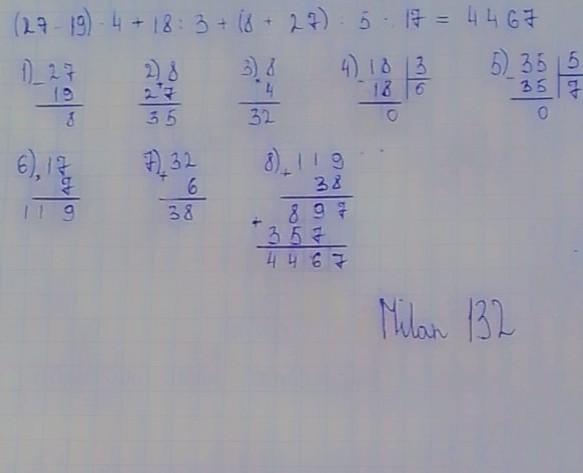 (27 - 19) · 4 + 18 : 3 + (8 + 27) : 5 · 17 = 4467
1) - 27 2) 8 3) 8 4) - 18 | 3 5) - 35 | 5
19 + 27 · 4 18 | 6 35 | 7
8 35 32 0 0
6) · 17 7) + 32 8) + 119
7 6 38
119 38 897
+ 357
4467
Milan 132